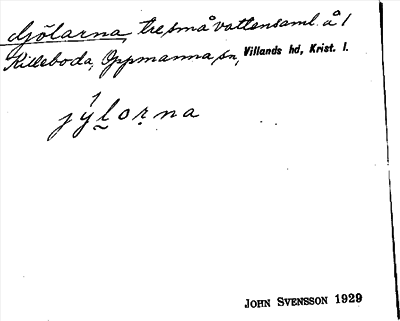 djölarna, tre små vattensaml. å 1
Killeboda, Oppmanna sn, Villands hd, Krist. l.
jy̗lorna
JOHN SVENSSON 1929